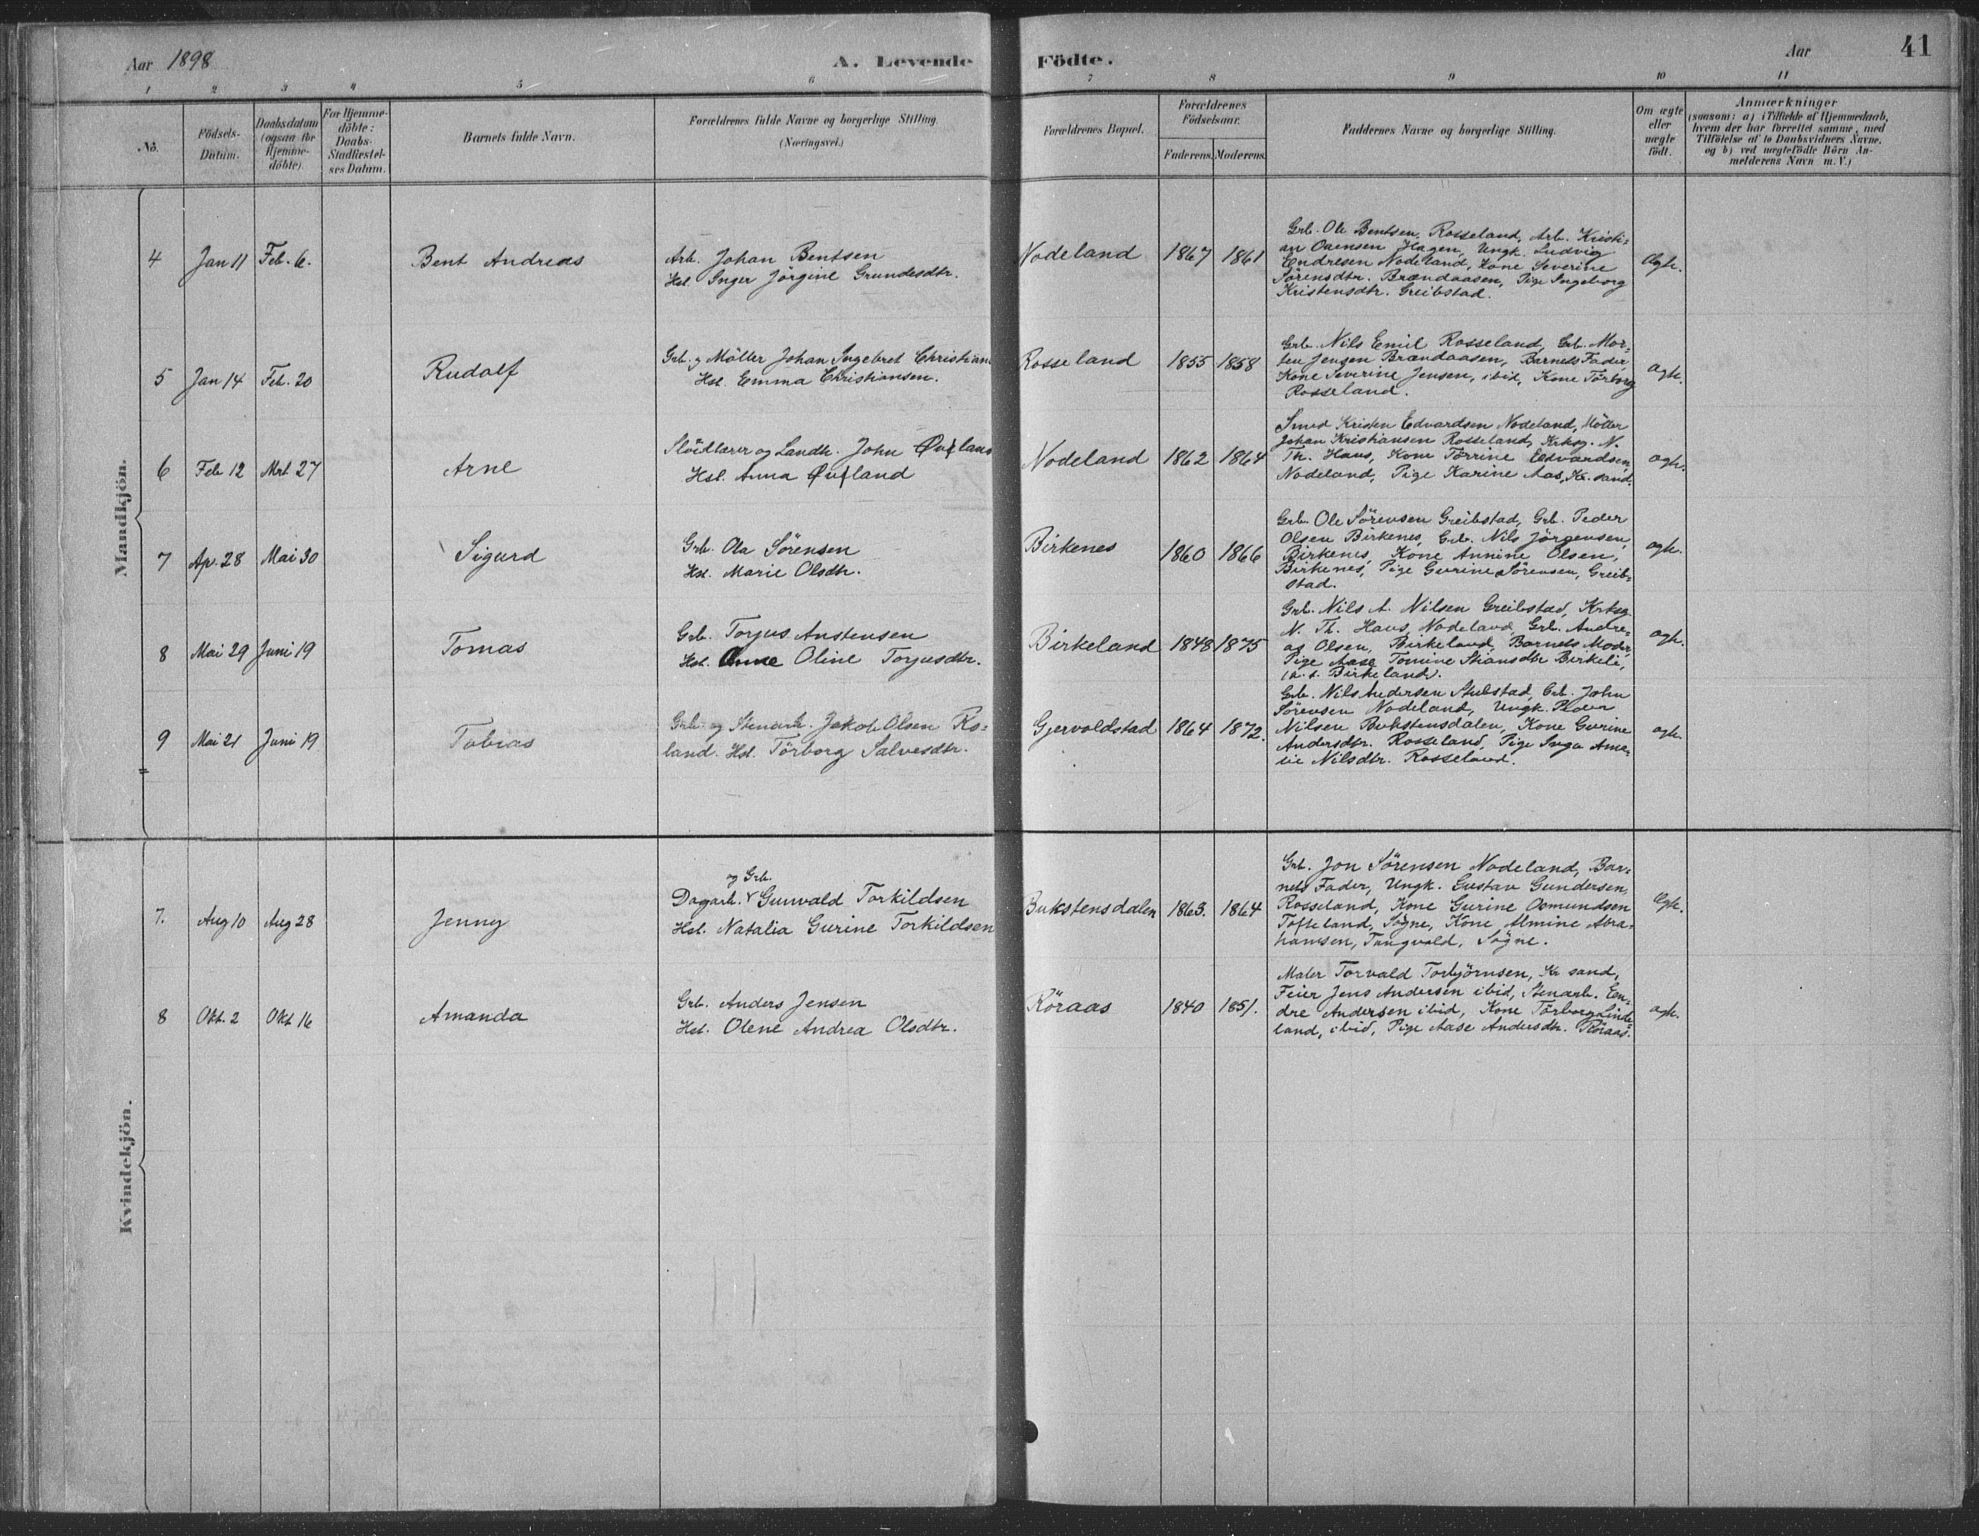 Aar 1898
A. Levende Födte.
Aar
41
1 2 3 4 5 6 7 8 9 10 11
No.
Födsels-
Datum.
Daabsdatum
(ogsaa for
Hjemme-
döbte).
For Hjemme-
döbte:
Daabs-
Stadfæstel-
ses Datum.
Barnets fulde Navn.
Forældrenes fulde Navne og borgerlige Stilling
(Næringsvei.)
Forældrenes Bopæl.
Forældrenes
Födselsaar.
Faderens. Moderens.
Faddernes Navne og borgerlige Stilling.
Om ægte
eller
uægte
födt.
Anmærkninger
(saasom: a) i Tilfælde af Hjemmedaab,
hvem der har forrettet samme, med
Tilföielse af to Daabsvidners Navne,
og b) ved uægtefödte Börn An-
melderens Navn m. V.)
Mandkjön.
4 Jan 11 Feb. 6. Bent Andreas
Arb. Johan Bentsen
Hst. Inger Jörgine Grundesdtr.
Nodeland 1867 1861
Grb. Ole Bentsen, Rosseland, Arb. Kristi-
an Hagen, Ungk. Ludvig
Endresen Nodeland, Kone Severine
Sörensdtr. Brændaasen, Pige Ingeborg
Kristensdtr. Greibstad.
Ægte.
5 Jan 14 Feb. 20 Rudolf
Grb. og Möller Johan Ingebret Christian
Hst. Emma Christiansen.
Rosseland 1855 1858
Grb. Nils Emil Rosseland, Grb. Mor-
ten Jensen Brændaasen, Barnets Fader,
Kone Severine Jensen, ibid, Kone Törborg
Rosseland.
ægte.
6 Feb 12 Mrt 27 Arne
Slöidlærer og Landh. John Øvland
Hst. Anna Øvland
Nodeland 1862 1864
Smed Kristen Edvardsen Nodeland, Möller
Johan Kristiansen Rosseland, Krksg. N.
Th. Haus, Kone Törrine Edvardsen,
Nodeland, Pige Karine Aas, Kr. sand.
ægte.
7 Ap. 28 Mai 30 Sigurd
Grb. Ola Sörensen
Hst. Marie Olsdtr.
Birkenes 1860 1866
Grb. Ole Sörensen Greibstad, Grb. Peder
Olsen Birkenes, Grb. Nils Jörgensen,
Birkenes, Kone Annine Olsen,
Birkenes, Pige Gurine Sörensen, Greib-
stad.
ægte.
8 Mai 29 Juni 19 Tomas
Grb. Torjus Anstensen
Hst. Anne Oline Torjusdtr.
Birkeland 1848 1875
Grb. Nils A. Nilsen Greibstad, Krksg.
N. Th. Haus, Nodeland, Grb. Andre-
as Olsen, Birkeland, Barnets Moder,
Pige Aase Tomine Birkeli,
Birkeland.
ægte.
9 Mai 21 Juni 19 Tobias
Grb. og Stenarb. Jakob Olsen Ro-
land. Hst. Törborg Salvesdtr.
Gjervoldstad 1864 1872.
Grb. Nils Andersen Stubstad, Grb. John
Sörensen Nodeland, Ungk.
Nilsen Bukstensdalen, Kone Gurine
Andersdtr. Rosseland, Pige Inga Ama-
lie Nilsdtr. Rosseland.
ægte.
Kvindekjön.
7. Aug 10 Aug 28 Jenny
og Grb.
Dagarb. Gunvald Torkildsen
Hst. Natalia Gurine Torkildsen
Bukstensdalen 1863. 1864
Grb. Jon Sörensen Nodeland, Bar-
nets Fader, Ungk. Gustav Gundersen,
Rosseland, Kone Gurine Osmundsen
Tofteland, Sögne, Kone Almine Abra-
hamsen, Tangvald, Sögne.
Ægte.
8 Okt. 2 Okt 16 Amanda
Grb. Anders Jensen
Hst. Olene Andrea Olsdtr.
Röraas 1840 1851.
Maler Torvald Torbjörnsen, Kr sand,
Feier Jens Andersen ibid, Stenarb. En-
dre Andersen ibid, Kone Törborg Linde-
land, ibid, Pige Aase Andersdtr. Röraas.
ægte.